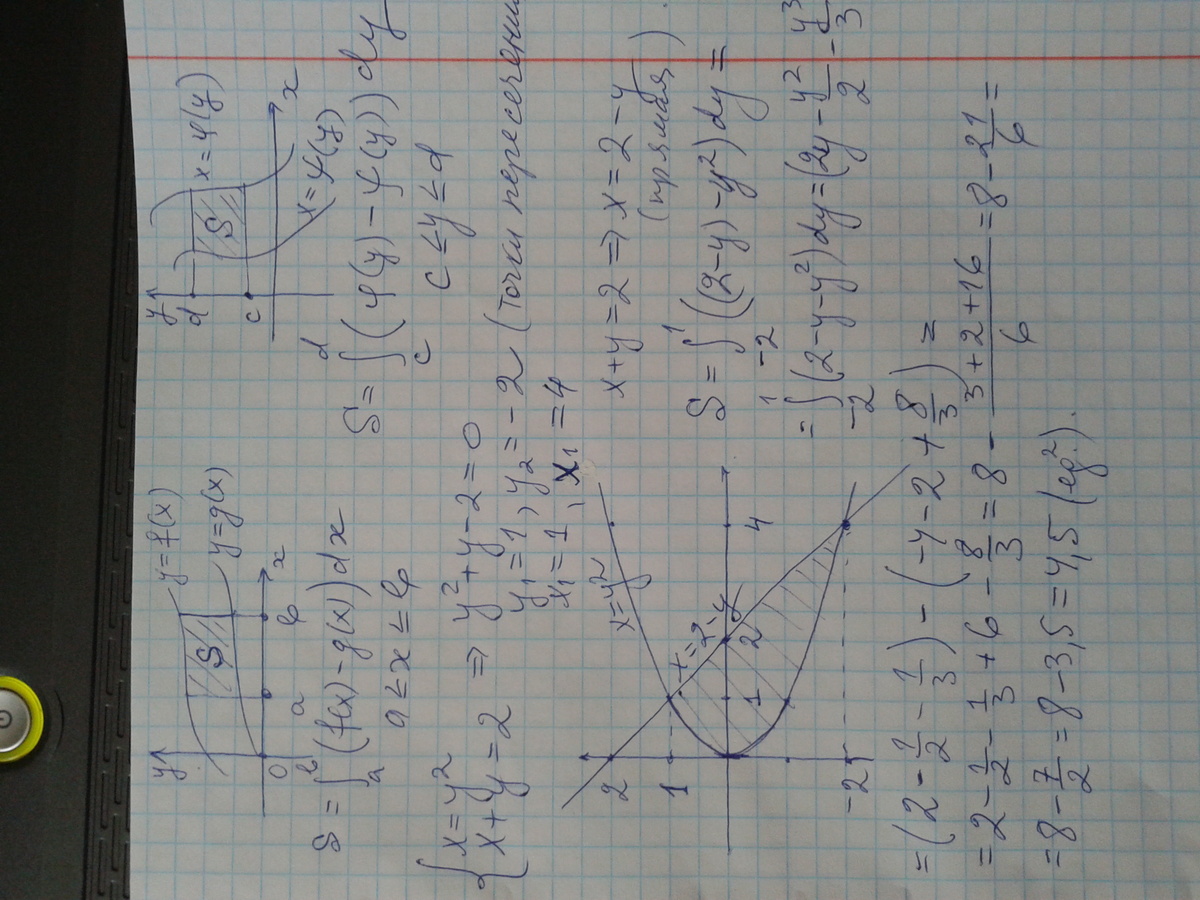 y y=f(x)
S y=g(x)
0 a b x
y
d S x=φ(y)
c x
x=ψ(y)
S=∫ₐᵇ(f(x)-g(x))dx
a≤x≤b
S=∫_c^d(φ(y)-ψ(y))dy
c≤y≤d
{x=y²
x+y=2 ⇒ y²+y-2=0
y₁=1, y₂=-2 (Точки пересечени
x₁=1, x₁=4
x=y²
x=2-y
2
1
1 2 4
-2
x+y=2 ⇒ x=2-y
(прямая)
S=∫_{-2}^1((2-y)-y²)dy=
=∫_{-2}^1(2-y-y²)dy=(2y-y²/2-y³/3
=(2-1/2-1/3)-(-4-2+8/3)=
=2-1/2-1/3+6-8/3=8-(3+2+16)/6=8-21/6=
=8-7/2=8-3,5=4,5 (ед.²).